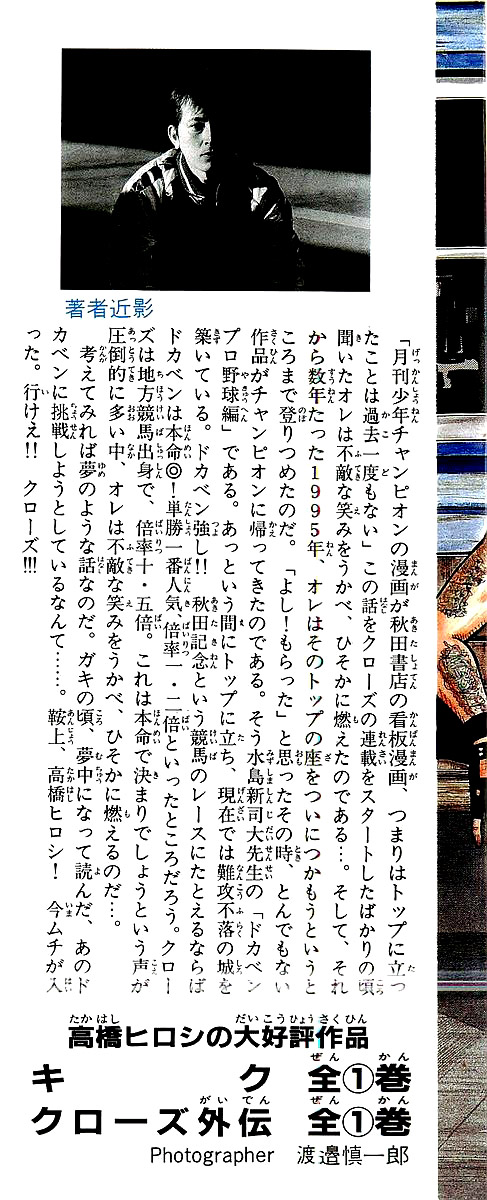 著者近影
「月刊少年チャンピオンの漫画が秋田書店の看板漫画、つまりはトップに立っ
たことは過去一度もない」この話をクローズの連載をスタートしたばかりの頃
聞いたオレは不敵な笑みをうかべ、ひそかに燃えたのである…。そして、それ
から数年たった1995年、オレはそのトップの座をついにつかもうというと
ころまで登りつめたのだ。「よし！もらった」と思ったその時、とんでもない
作品がチャンピオンに帰ってきたのである。そう水島新司大先生の「ドカベン
プロ野球編」である。あっという間にトップに立ち、現在では難攻不落の城を
築いている。ドカベン強し!!　秋田記念という競馬のレースにたとえるならば
ドカベンは本命◎！単勝一番人気、倍率一・二倍といったところだろう。クロー
ズは地方競馬出身で、倍率十・五倍。これは本命で決まりでしょうという声が
圧倒的に多い中、オレは不敵な笑みをうかべ、ひそかに燃えるのだ…。
考えてみれば夢のような話なのだ。ガキの頃、夢中になって読んだ、あのド
カベンに挑戦しようとしているなんて……。鞍上、高橋ヒロシ！　今ムチが入
った。行けえ!!　クローズ!!!
高橋ヒロシの大好評作品
キク 全①巻
クローズ外伝 全①巻
Photographer 渡邉慎一郎